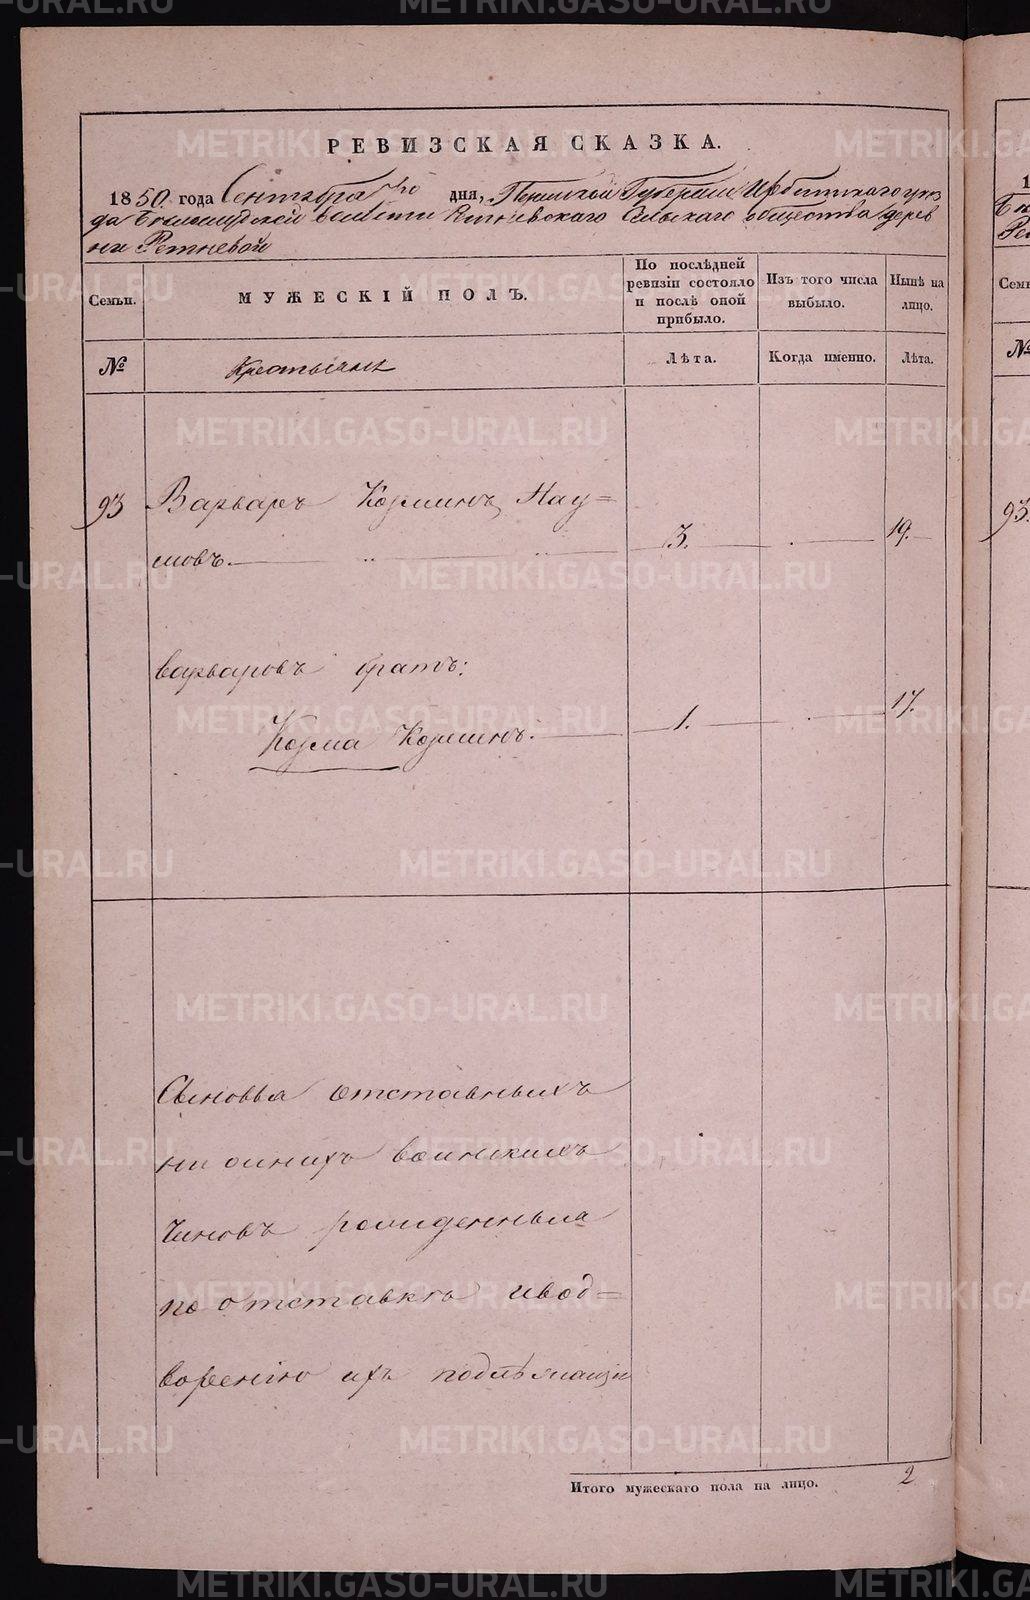 РЕВИЗСКАЯ СКАЗКА.
1850 года Сентября дня, Пермской Губернии Ирбитскаго уѣз
да волости Ретневскаго Сельскаго общества дерев
ни Ретневой
Семьи.
МУЖЕСКІЙ ПОЛЪ.
По послѣдней
ревизіи состояло
и послѣ оной
прибыло.
Изъ того числа
выбыло.
Нынѣ на
лицо.
№
Крестьяне
Лѣта.
Когда именно.
Лѣта.
93 Варваръ Козминъ Нау=
мовъ. 3. 19.
варваровъ братъ:
Козма Козминъ. 1. 17.
Сыновья отставныхъ
нижнихъ воинскихъ
чиновъ рожденныя
по отставкѣ и вод=
воренію ихъ подлѣжащіи
Итого мужескаго пола на лицо. 2
1
93.
Семь
№
METRIKI.GASO-URAL.RU